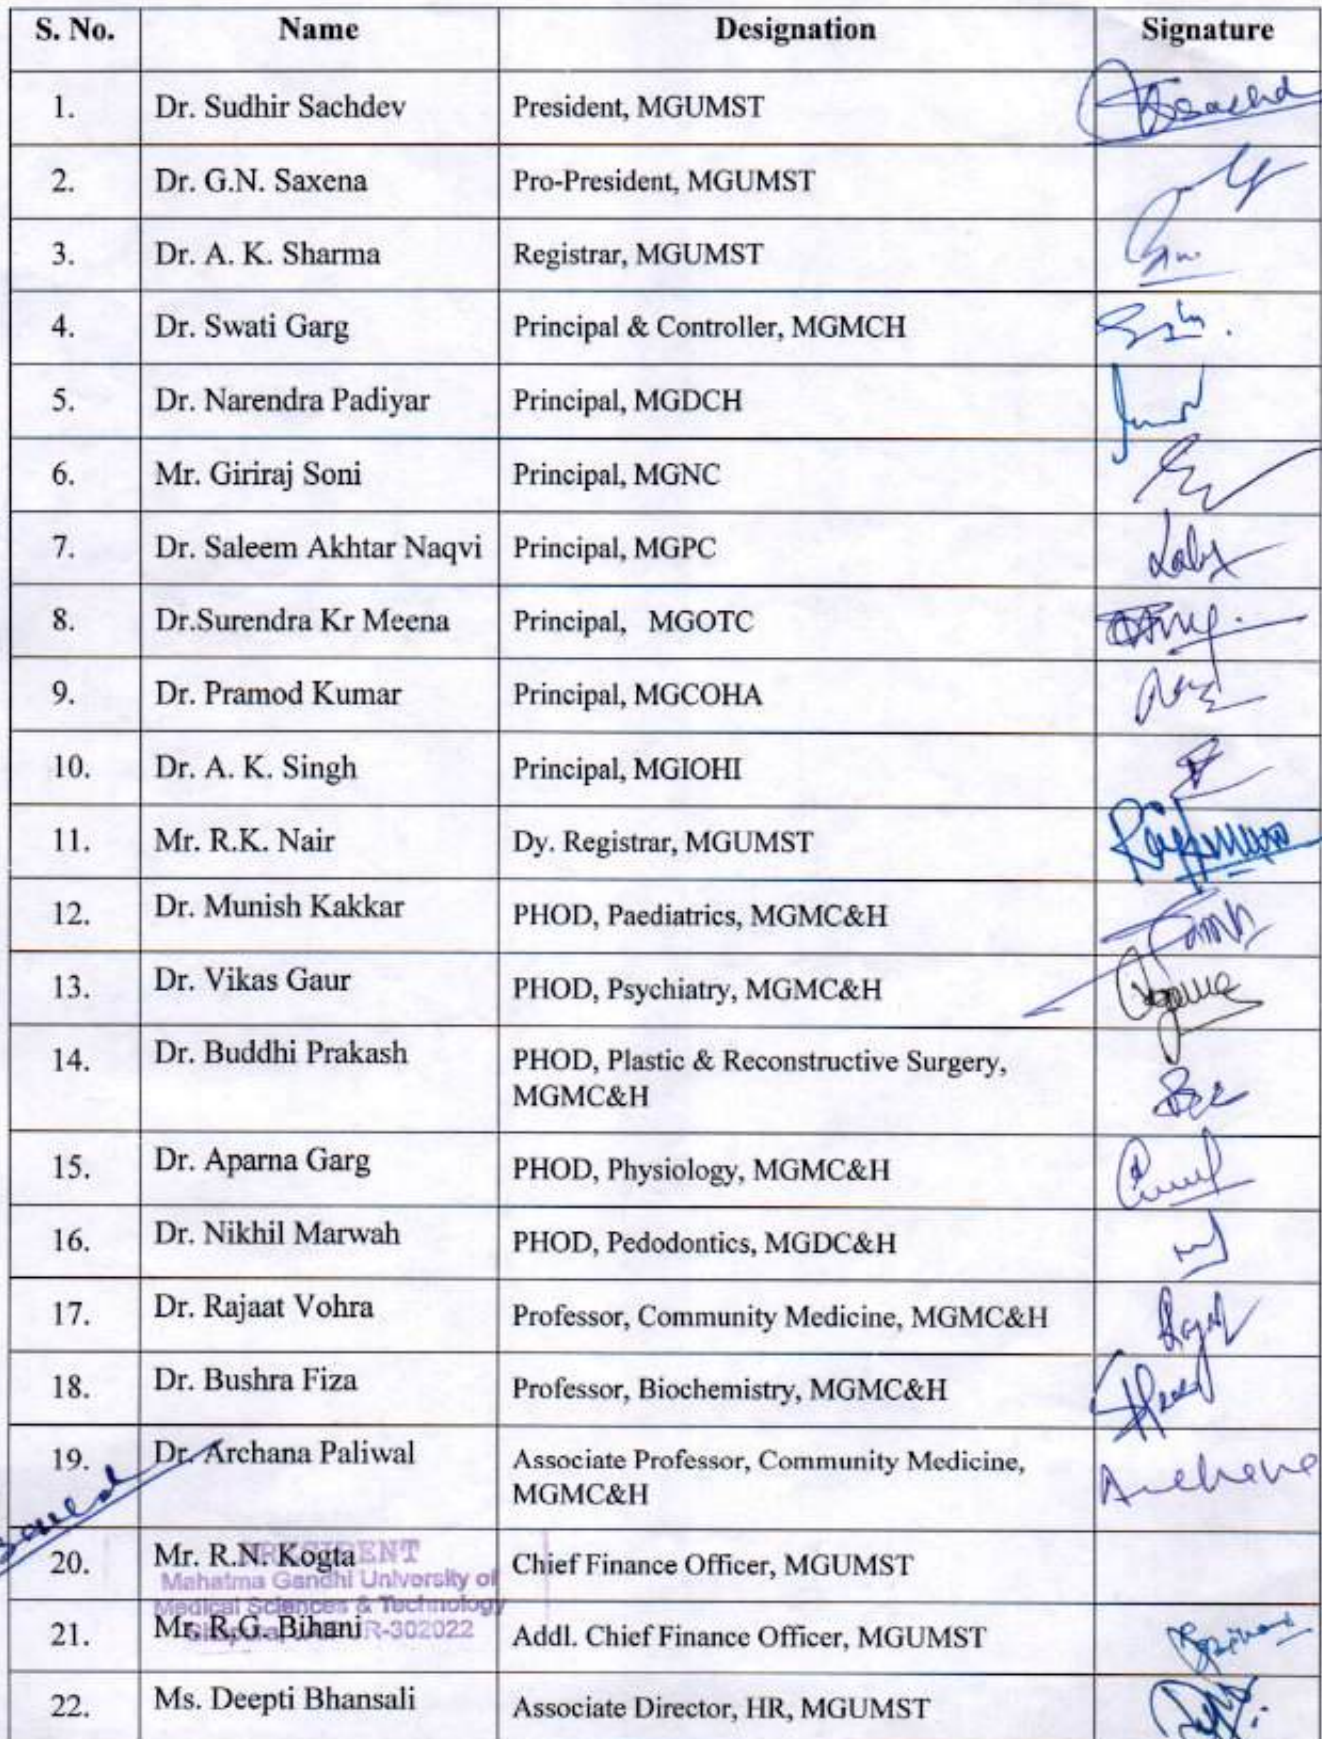 S. No. Name Designation Signature
1. Dr. Sudhir Sachdev President, MGUMST
2. Dr. G.N. Saxena Pro-President, MGUMST
3. Dr. A. K. Sharma Registrar, MGUMST
4. Dr. Swati Garg Principal & Controller, MGMCH
5. Dr. Narendra Padiyar Principal, MGDCH
6. Mr. Giriraj Soni Principal, MGNC
7. Dr. Saleem Akhtar Naqvi Principal, MGPC
8. Dr.Surendra Kr Meena Principal, MGOTC
9. Dr. Pramod Kumar Principal, MGCOHA
10. Dr. A. K. Singh Principal, MGIOHI
11. Mr. R.K. Nair Dy. Registrar, MGUMST
12. Dr. Munish Kakkar PHOD, Paediatrics, MGMC&H
13. Dr. Vikas Gaur PHOD, Psychiatry, MGMC&H
14. Dr. Buddhi Prakash PHOD, Plastic & Reconstructive Surgery,
MGMC&H
15. Dr. Aparna Garg PHOD, Physiology, MGMC&H
16. Dr. Nikhil Marwah PHOD, Pedodontics, MGDC&H
17. Dr. Rajaat Vohra Professor, Community Medicine, MGMC&H
18. Dr. Bushra Fiza Professor, Biochemistry, MGMC&H
19. Dr. Archana Paliwal Associate Professor, Community Medicine,
MGMC&H
20. Mr. R.N. Kogta Chief Finance Officer, MGUMST
PRESIDENT
Mahatma Gandhi University of
Medical Sciences & Technology
21. Mr. R.G. Bihani Addl. Chief Finance Officer, MGUMST
22. Ms. Deepti Bhansali Associate Director, HR, MGUMST